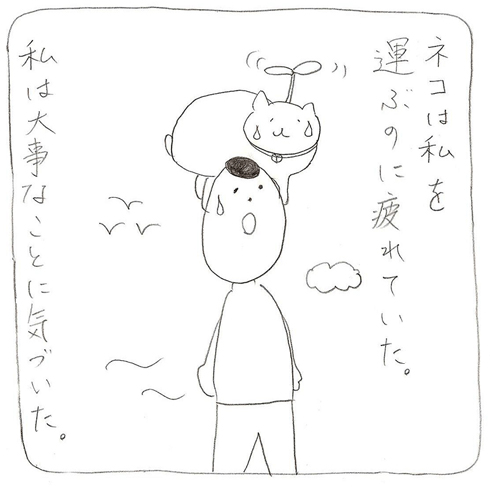 ネコは私を
運ぶのに疲れていた。
私は大事なことに気づいた。